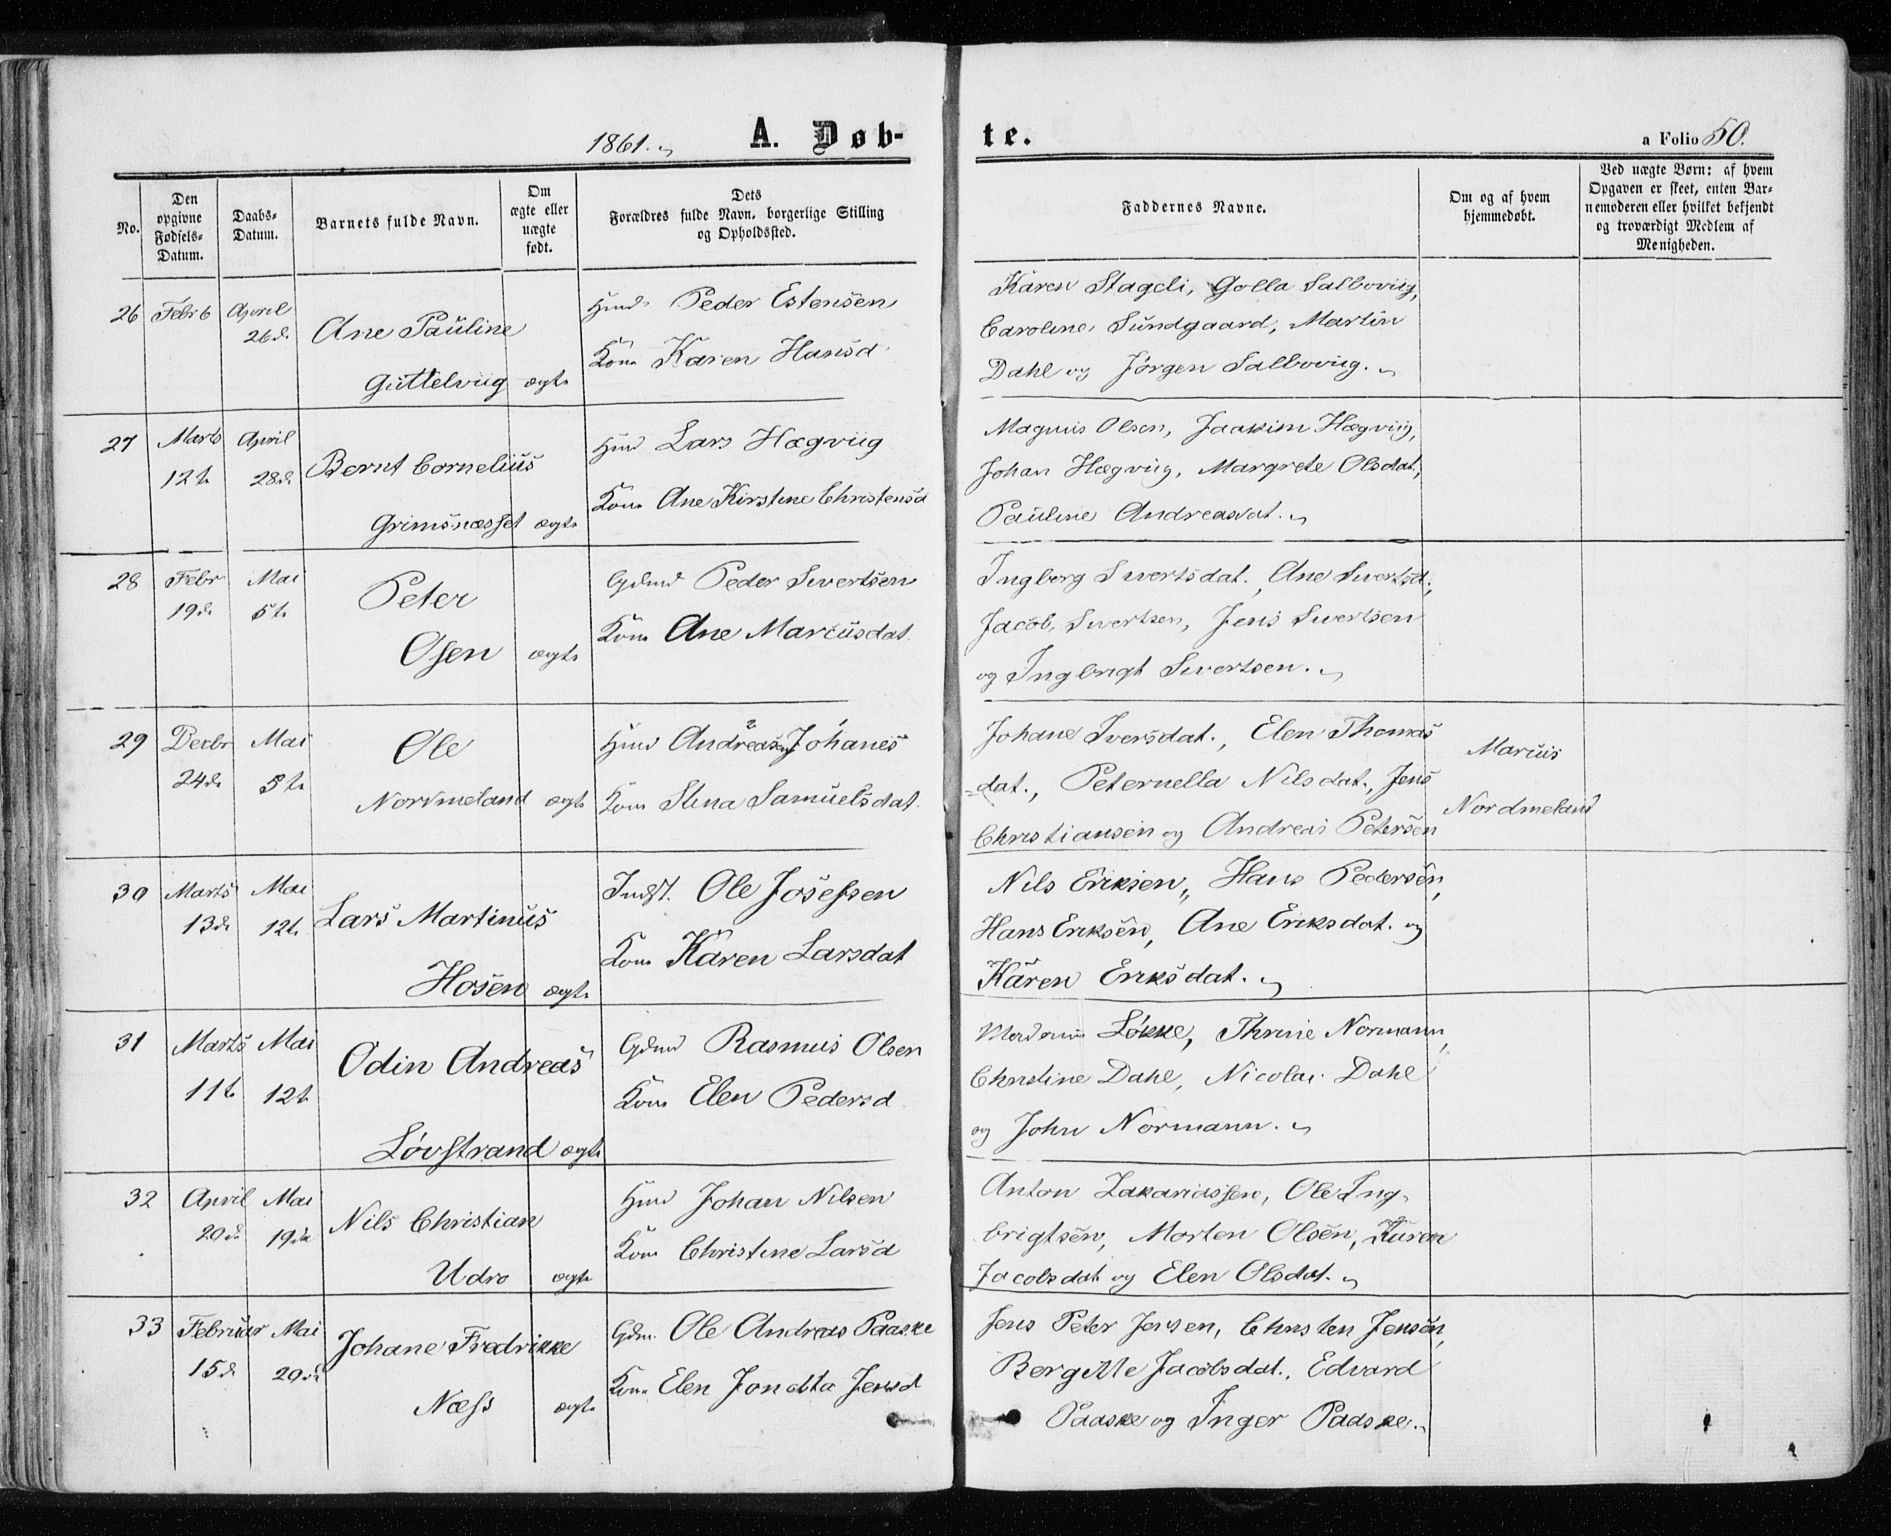 1861.
A. Døb-
te.
a Folio 50.
No.
Den opgivne Fødsels-Datum.
Daabs-Datum.
Barnets fulde Navn.
Om ægte eller uægte født.
Dets Forældres fulde Navn, borgerlige Stilling og Opholdssted.
Faddernes Navne.
Om og af hvem hjemmedøbt.
Ved uægte Børn: af hvem Opgaven er skeet, enten Barnemoderen eller hvilket bekjendt og troværdigt Medlem af Menigheden.
26 Febr 6 April 26d.
Ane Pauline
Guttelviig ægte
Hmd Peder Estensen
Kone Karen Hansd.
Karen Stageli, Golla Salboviig,
Caroline Sundgaard, Martin
Dahl og Jørgen Salboviig.
27 Marts 12te April 28d.
Bernt Cornelius
Grimsnæsset ægte
Hmd Lars Hægviig
Kone Ane Kirstine Christensd
Magnus Olsen, Joakim Hægviig,
Johan Hægviig, Margrete Olsdat,
Pauline Andreasdat.
28 Febr 19d. Mai 5te
Peter
Osen ægte
Gdmd Peder Sivertsen
Kone Ane Marcusdat.
Ingborg Sivertsdat., Ane Sivertsd.,
Jacob Sivertsen, Jens Sivertsen
og Ingbrigt Sivertsen.
29 Decbr 24d. Mai 5te
Ole
Nordmeland ægte
Hmd Andreas Johanes
Kone Stina Samuelsdat.
Johane Iversdat., Elen Thomas
=dat., Peternella Nilsdat., Jens
Christiansen og Andreas Petersen
Marcus
Nordmeland
30 Marts 13d. Mai 12te
Lars Martinus
Hosen ægte
Indst. Ole Josefsen
Kone Karen Larsdat
Nils Eriksen, Hans Pedersen,
Hans Eriksen, Ane Eriksdat. og
Karen Eriksdat.
31 Marts 11te Mai 12te
Odin Andreas
Løvstrand ægte
Gdmd Rasmus Olsen
Kone Elen Pedersd.
Madame Løkke, Thrine Normann,
Christine Dahl, Nicolai Dahl
og John Normann.
32 April 20d. Mai 19de
Nils Christian
Udro ægte
Hmd Johan Nilsen
Kone Christine Larsd
Anton Zakariassen, Ole Ing-
brigtsen, Morten Olsen, Karen
Jacobsdat og Elen Olsdat.
33 Februar 15d. Mai 20d.
Johane Fredrikke
Næss ægte
Gdm. Ole Andreas Paaske
Kone Elen Jonetta Jensd
Jens Peter Jensen, Christen Jensen,
Bergitte Jacobsdat., Edvard
Paaske og Inger Paaske.